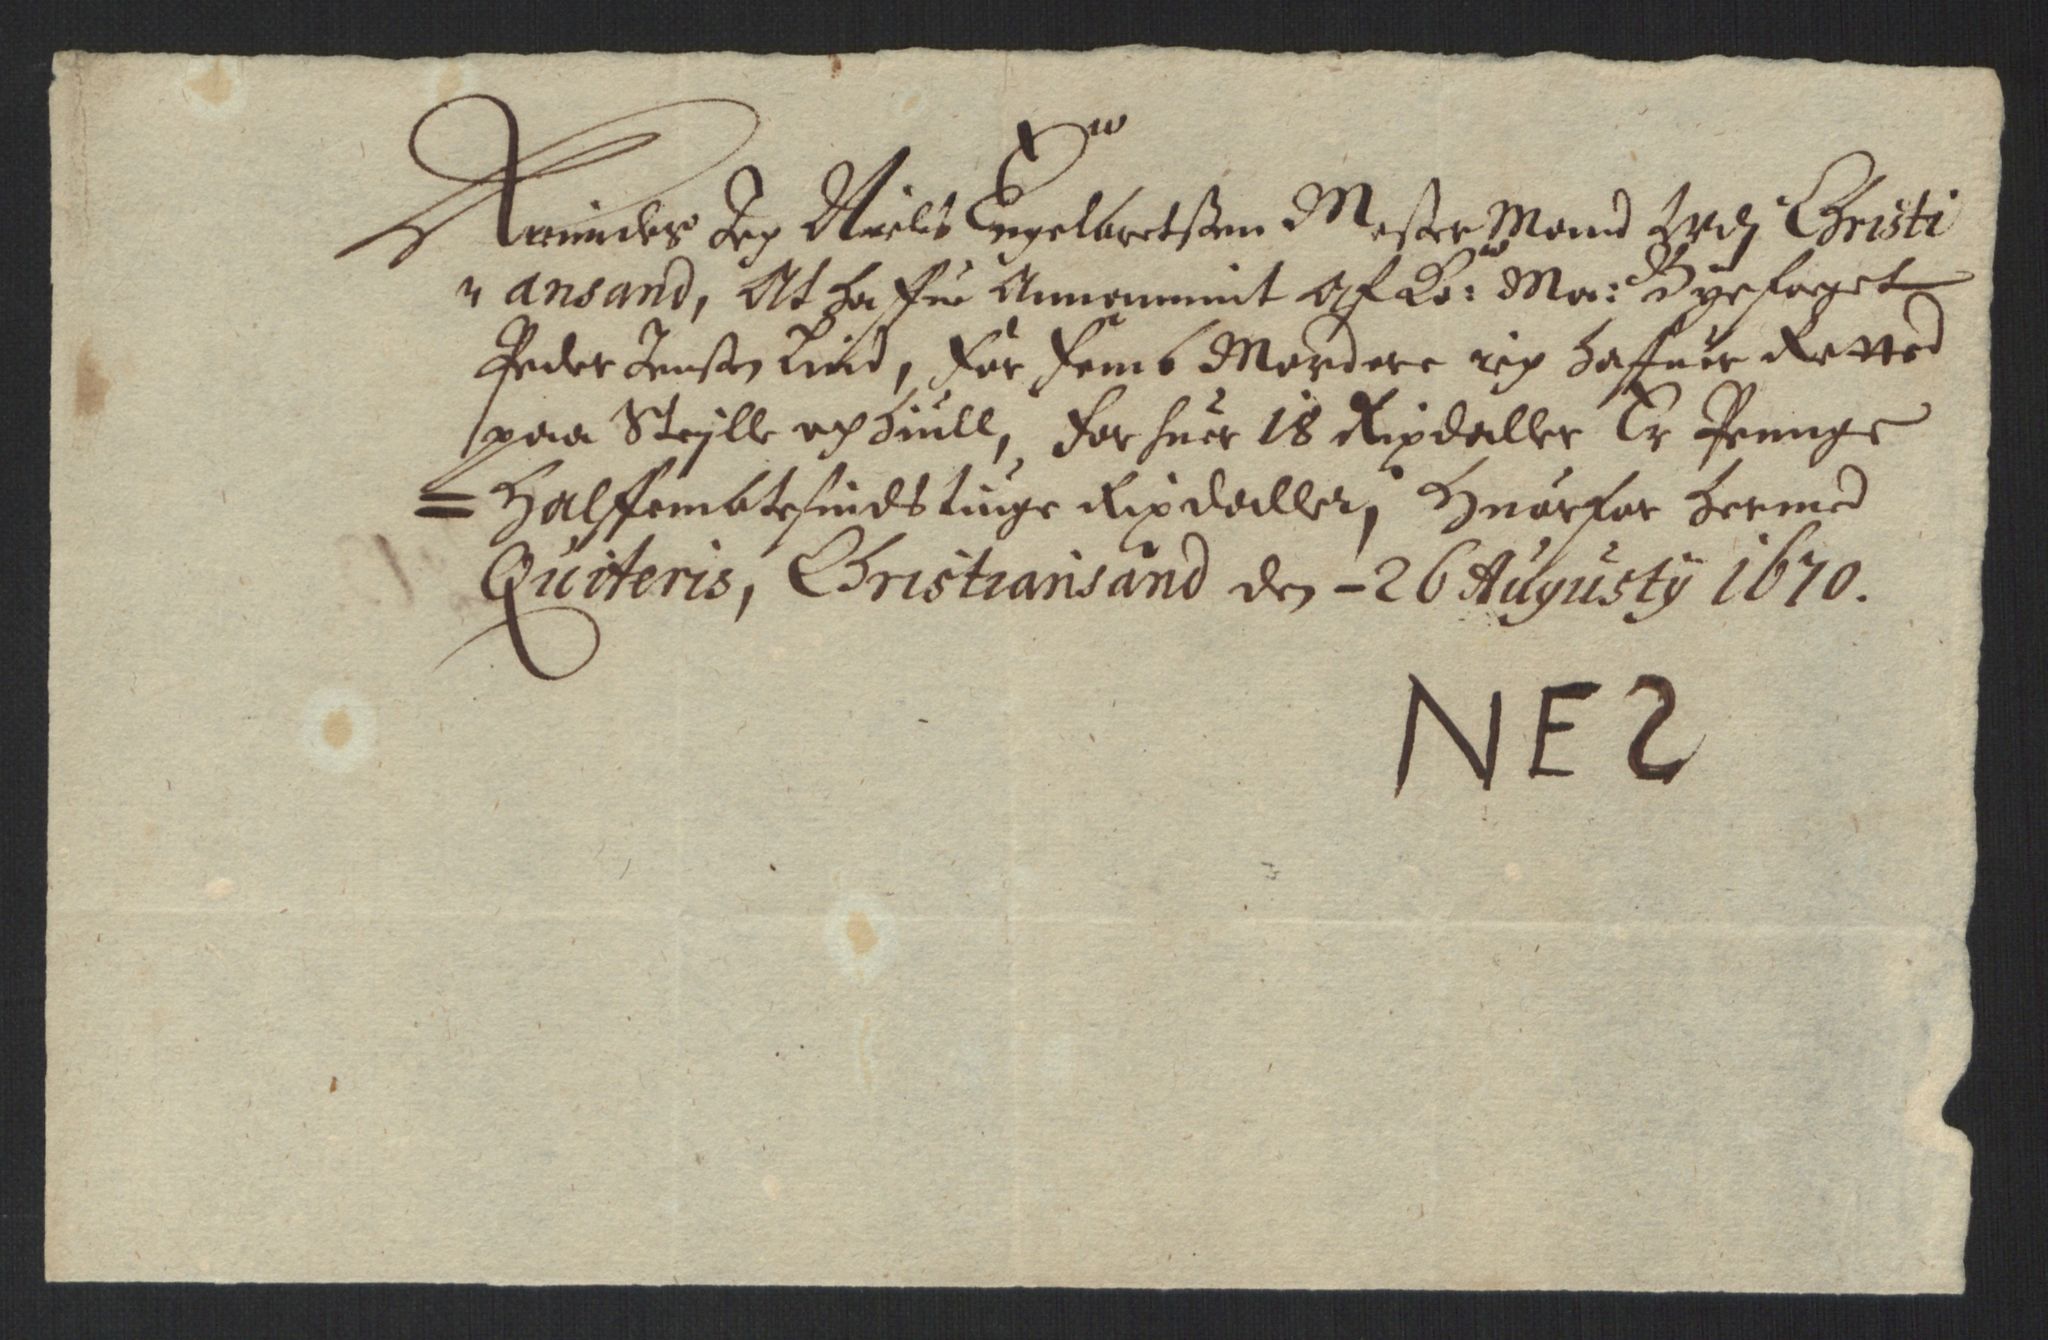 Xw
Kiendes Jeg Niels Engelbretssen Mester Mand Udj Christi
ansand, At haffue Annammit Af Ko: Ma: Byefoget
Peder Jenssen Lind, for femb Mordere ieg haffuer Retted
paa Steylle och hiull, for huer 18 Rixdaller Er Penge
= Halffembtesindstiuge Rixdaller, Huorfor hermed
Quiteris, Christiansand den - 26 Augustij 1670.
NES